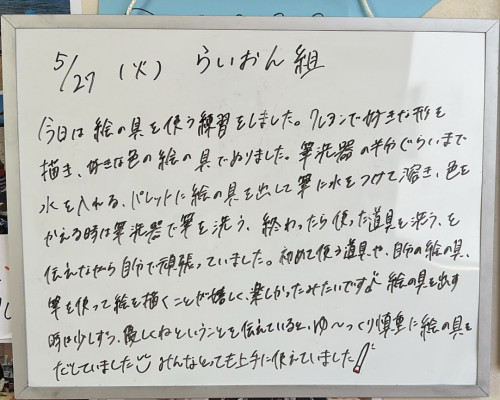 5/27 (火) らいおん組
今日は絵の具を使う練習をしました。クレヨンで好きな形を
描き、好きな色の絵の具でぬりました。筆洗器の半分ぐらいまで
水を入れる、パレットに絵の具を出して筆に水をつけて溶き、色を
かえる時は筆洗器で筆を洗う、終わったら使った道具を洗う、を
伝えながら自分で頑張っていました。初めて使う道具や、自分の絵の具、
筆を使って絵を描くことが嬉しく、楽しかったみたいです♪ 絵の具を出す
時は少しずつ、優しくねということを伝えていると、ゆ〜っくり慎重に絵の具を
だしていました みんなとっても上手に使えていました